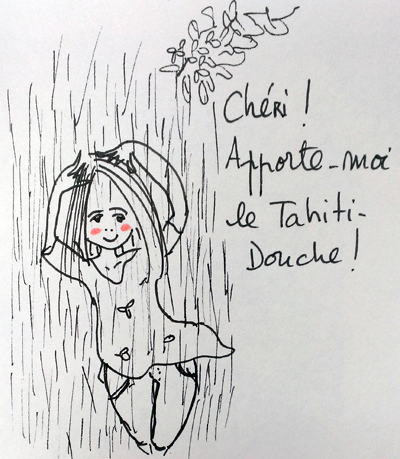 Chéri !
Apporte-moi
le Tahiti-
Douche !